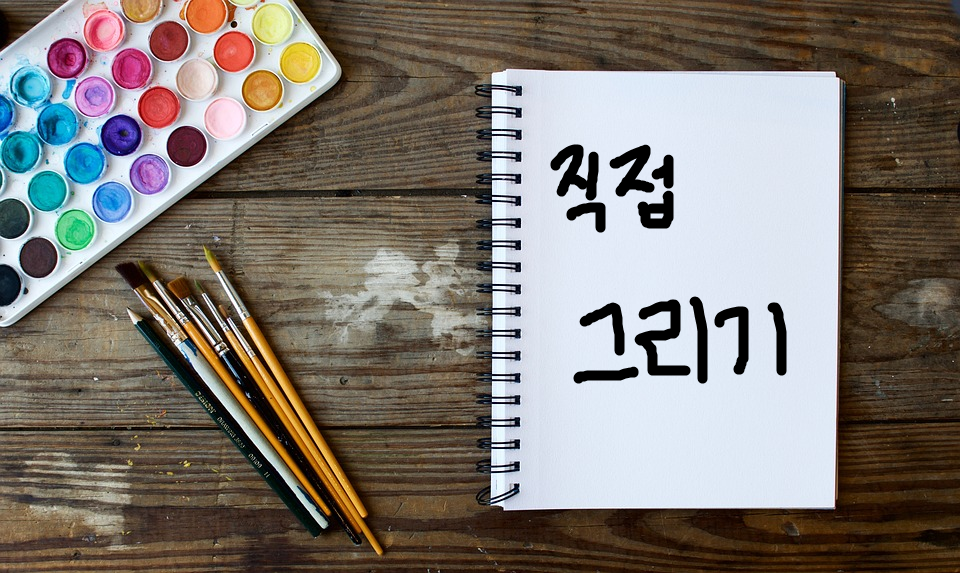 직접
그리기